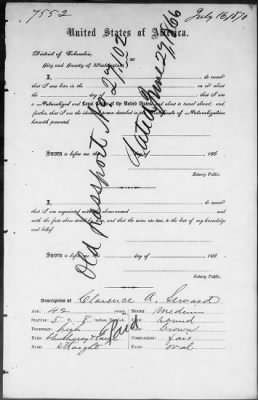 7552
July 16, 1870
United States of America.
District of Columbia,
City and County of Washington
I, do swear
that I was born in the on or about
the day of that I am
a Naturalized and Loyal Citizen of the United States, and about to travel abroad; and
further, that I am the identical person described in the Certificate of Naturalization
herewith presented.
Sworn to before me, this day of 186
Notary Public.
Old Passport No 27,702
Dated June 29, 1866
I, do swear
that I am acquainted with the above-named and
with the facts above stated by him, and that the same are true, to the best of my knowledge
and belief.
Sworn to before me, this day of 186
Notary Public.
Description of Clarence A. Seward
Age: 42 years, Mouth: Medium
Stature: 5 ft 8 inches, English, Chin: round
Forehead: high Hair: brown
Eyes: Complexion: fair
Nose: straight Face: oval
Paid